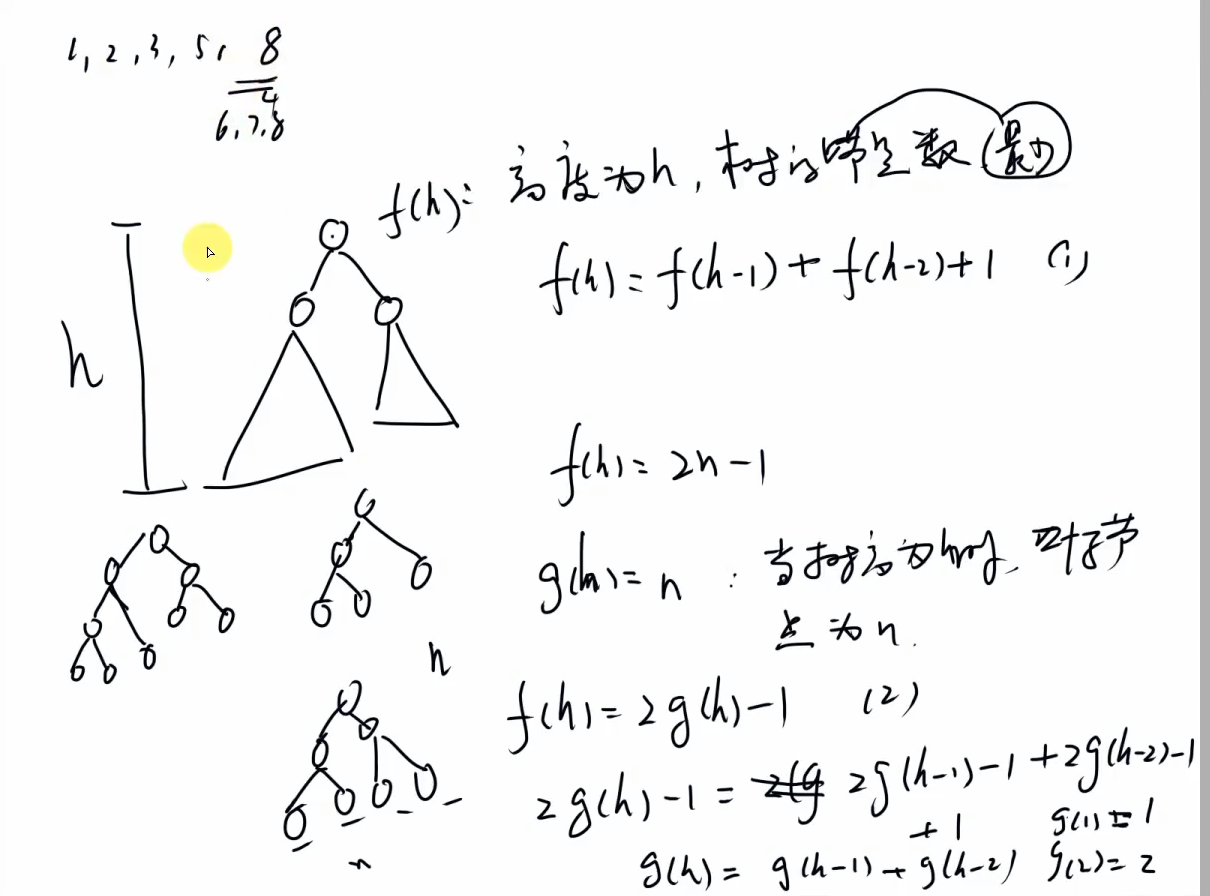 1, 2, 3, 5, 8
4
6, 7, 8
f(h): 高度为h, 树的节点数 (最少)
f(h) = f(h-1) + f(h-2) + 1 (1)
h
f(h) = 2n - 1
g(h) = n : 当树高为h时, 叶子节
点为n.
h
f(h) = 2g(h) - 1 (2)
2g(h) - 1 = 2g(h-1) - 1 + 2g(h-2) - 1
+ 1 g(1) = 1
n g(h) = g(h-1) + g(h-2) g(2) = 2